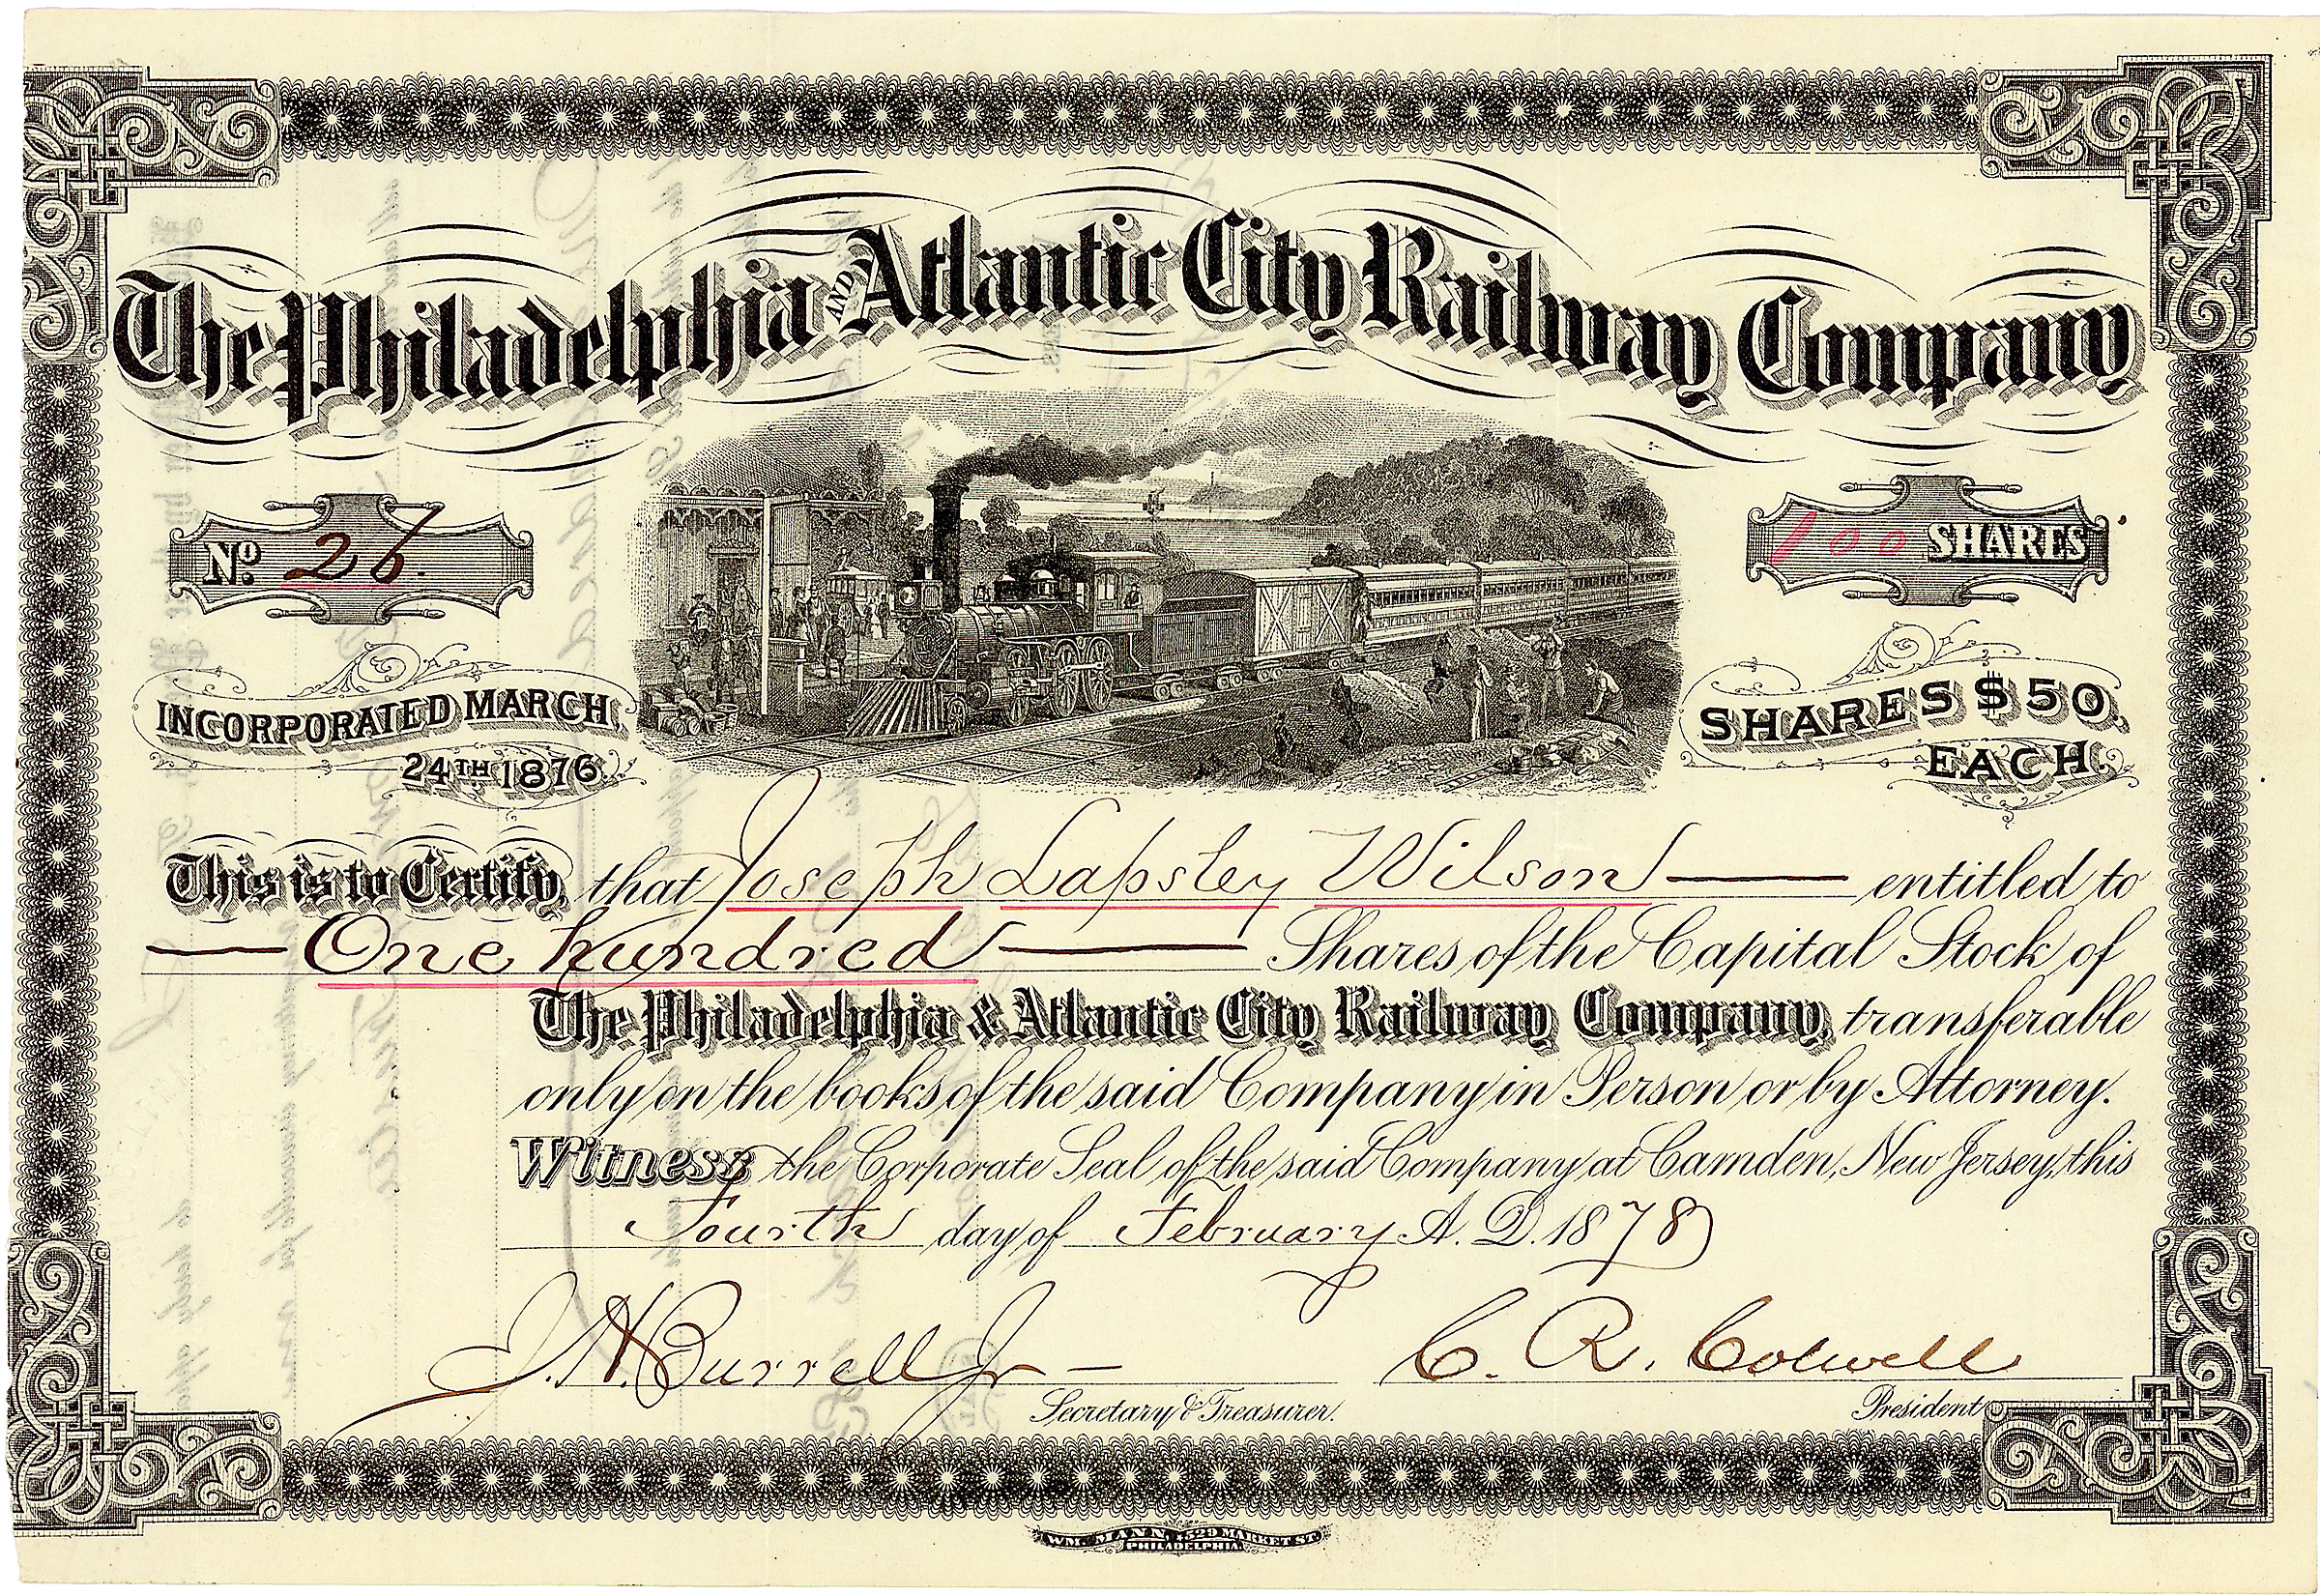 The Philadelphia AND Atlantic City Railway Company
No. 26.
100 SHARES
INCORPORATED MARCH
24TH 1876.
SHARES $50.
EACH.
This is to Certify, that Joseph Lapsley Wilson entitled to
One hundred Shares of the Capital Stock of
The Philadelphia & Atlantic City Railway Company, transferable
only on the books of the said Company in Person or by Attorney.
Witness the Corporate Seal of the said Company at Camden, New Jersey, this
Fourth day of February A.D. 1878
J. H. Burrell Jr C. R. Colwell
Secretary & Treasurer. President
WM. MANN, 529 MARKET ST.
PHILADELPHIA.